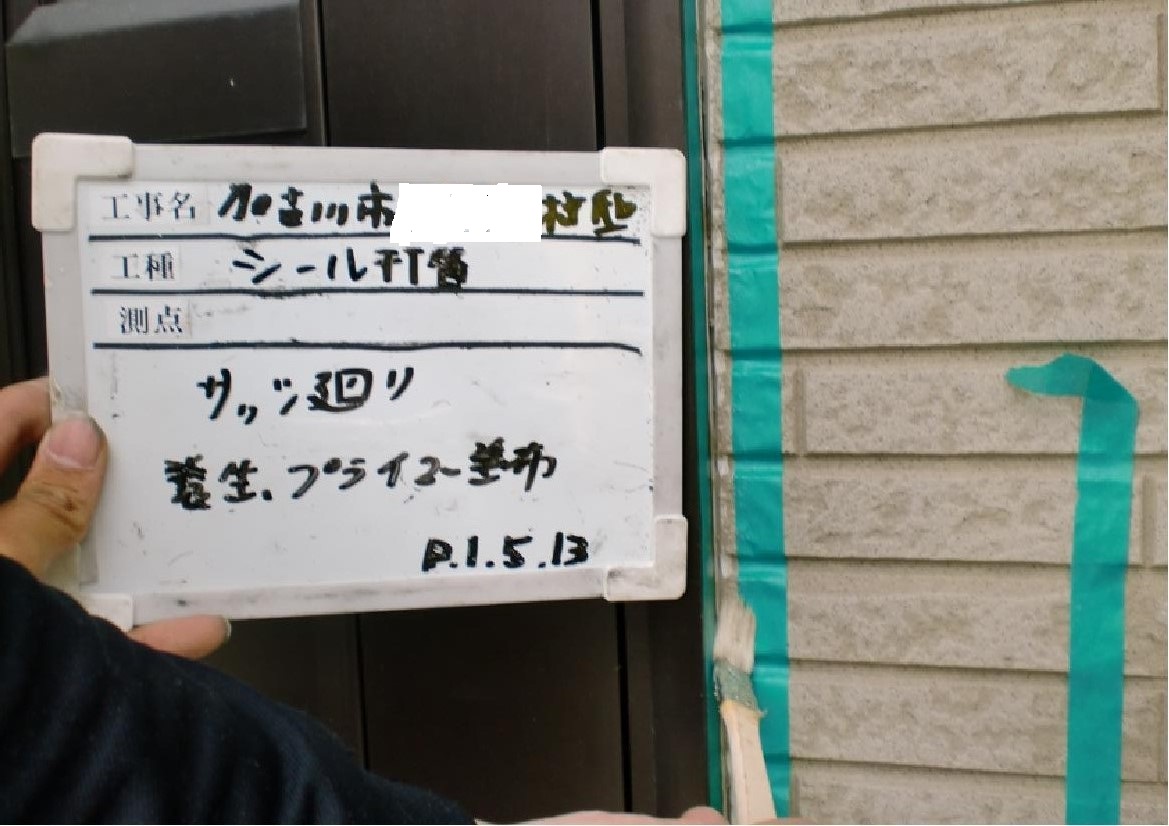 工事名 加古川市 村邸
工種 シール打替
測点
サッシ廻り
養生、プライマー塗布
R.1.5.13